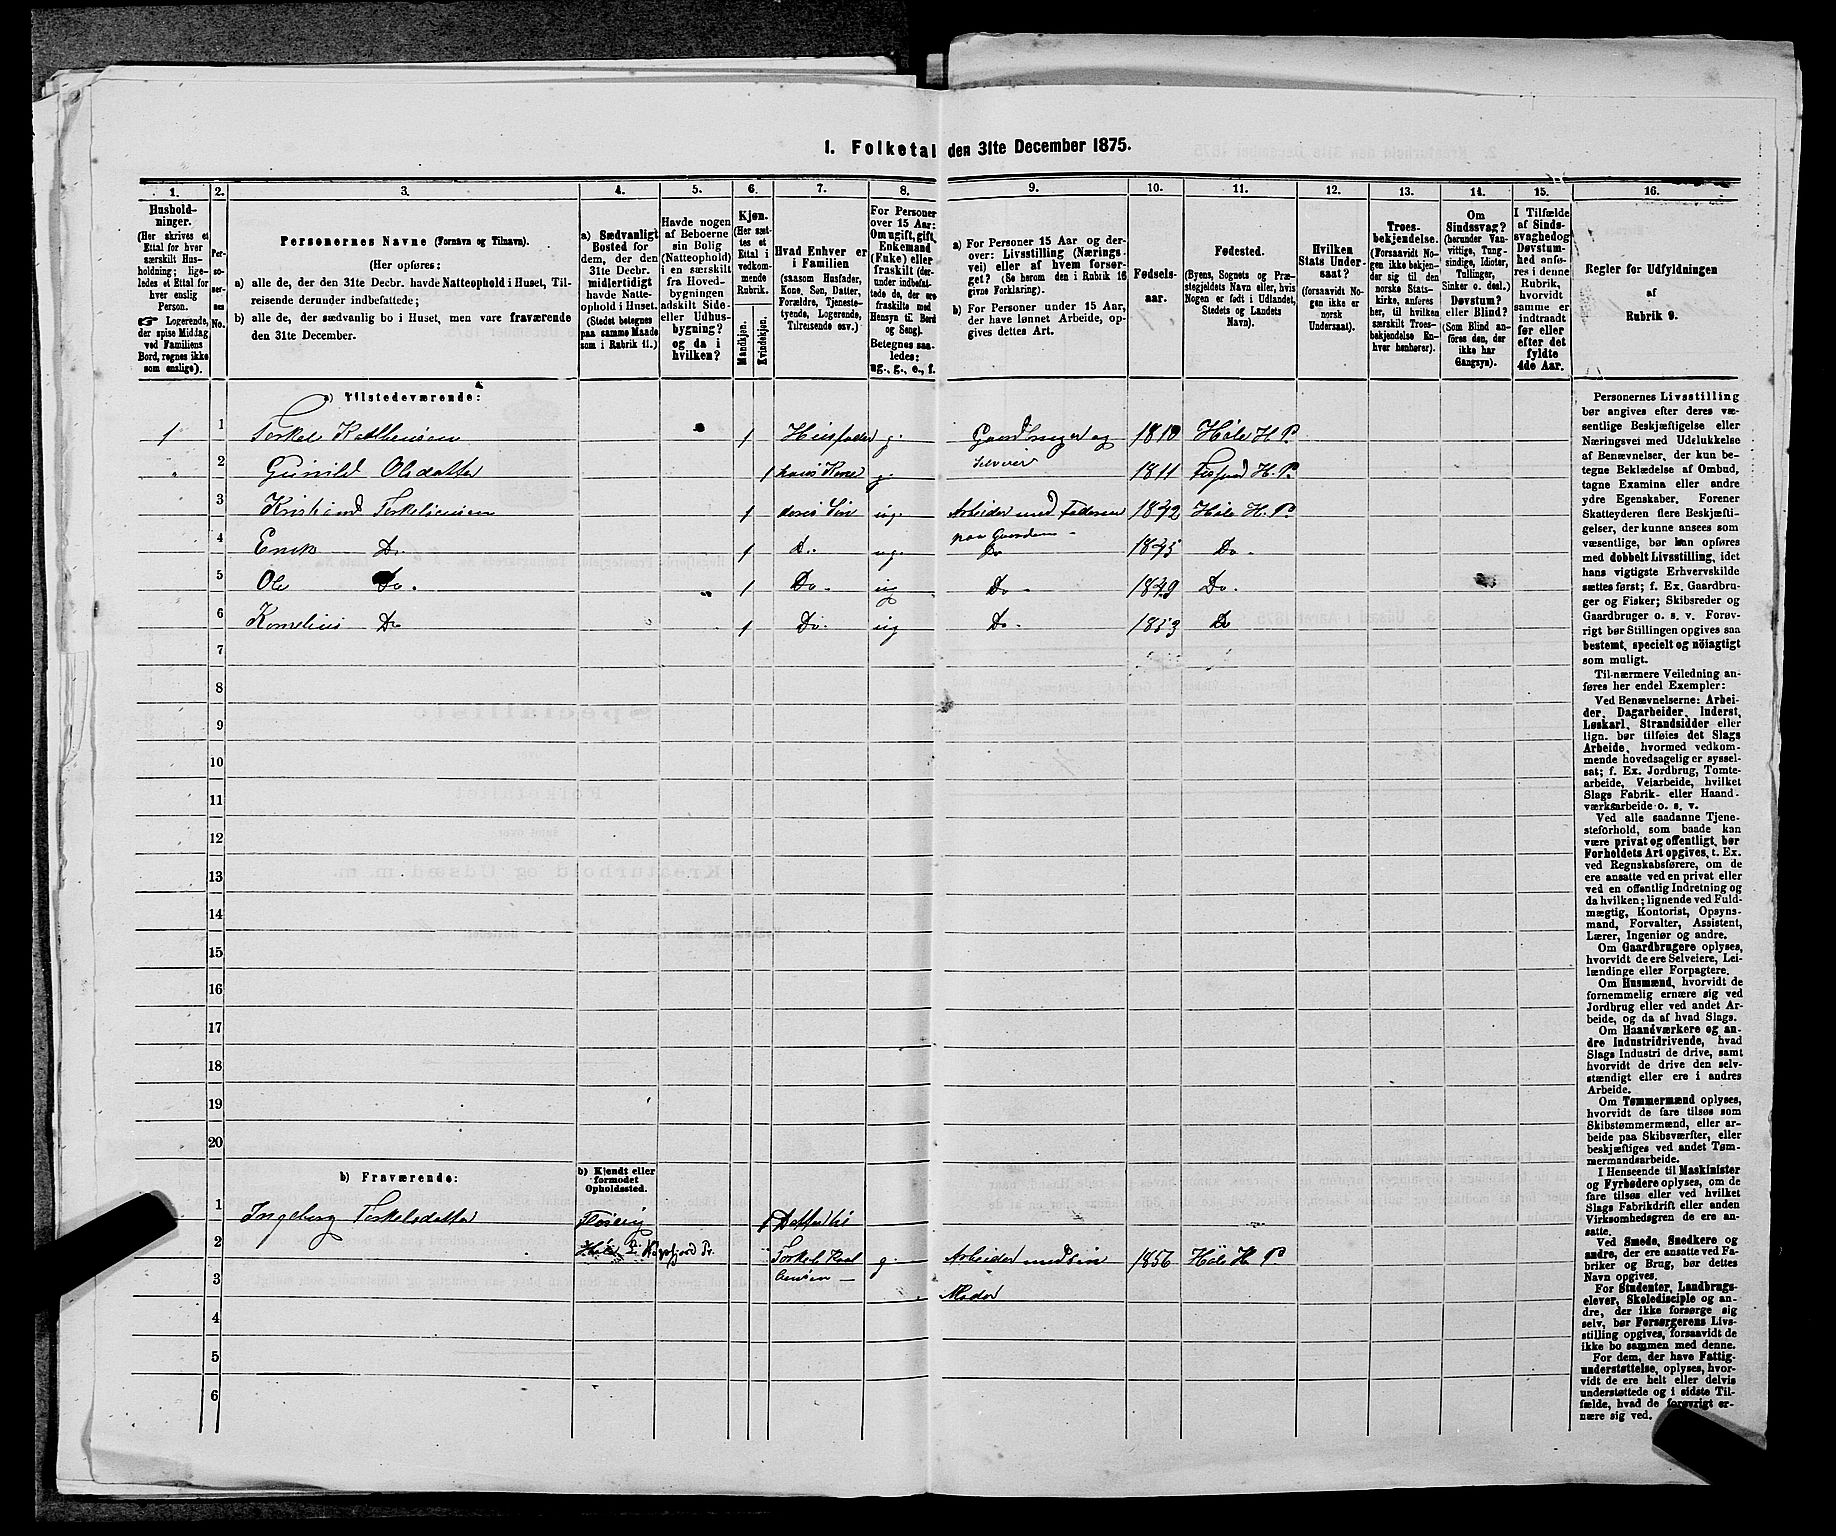 1. Folketal den 31te December 1875.
1. 2. 3. 4. 5. 6. 7. 8. 9. 10. 11. 12. 13. 14. 15. 16.
Husholdninger.
(Her skrives et
Ettal for hver
særskilt Husholdning;
ligeledes et Ettal for
hver enslig
Person.
☞ Logerende,
der spise Middag
ved Familiens
Bord, regnes ikke
som enslige).
Personernes No.
Personernes Navne (Fornavn og Tilnavn).
(Her opføres:
a) alle de, der den 31te Decbr. havde Natteophold i Huset, Tilreisende derunder indbefattede;
b) alle de, der sædvanlig bo i Huset, men vare fraværende
den 31te December.
a) Sædvanligt
Bosted for
dem, der den
31te Decbr.
midlertidigt
havde Natteophold i Huset.
(Stedet betegnes
paa samme Maade
som i Rubrik 11.)
Havde nogen
af Beboerne
sin Bolig
(Natteophold)
i en særskilt
fra Hovedbygningen
adskilt Side-
eller Udhusbygning?
og da i
hvilken?
Kjøn.
(Her sættes et
Ettal i
vedkommende
Rubrik.
Mandkjøn.
Kvindekjøn.
Hvad Enhver er
i Familien
(saasom Husfader,
Kone, Søn, Datter,
Forældre, Tjenestetyende, Logerende,
Tilreisende osv.)
For Personer
over 15 Aar:
Om ugift, gift,
Enkemand
(Enke) eller
fraskilt (derunder indbefattede de, der ere
fraskilte med
Hensyn til Bord
og Seng).
Betegnes saaledes:
ug., g., e., f.
a) For Personer 15 Aar og derover: Livsstilling (Næringsvei) eller af hvem forsørget? (Se herom den i Rubrik 16
givne Forklaring).
b) For Personer under 15 Aar,
der have lønnet Arbeide, opgives dettes Art.
Fødselsaar.
Fødested.
(Byens, Sognets og Præstegjeldets Navn eller, hvis
Nogen er født i Udlandet,
Stedets og Landets
Navn).
Hvilken
Stats Undersaat?
(forsaavidt Nogen ikke er
norsk
Undersaat).
Troesbekjendelse.
(Forsaavidt Nogen ikke bekjender sig til den
norske Statskirke, anføres
her, til hvilken
særskilt Troesbekjendelse Enhver henhører).
Om
Sindssvag?
(herunder Vanvittige, Tungsindige, Idioter,
Tullinger,
Sinker o. desl.)
Døvstum?
eller Blind?
(Som Blind anføres den, der
ikke har
Gangsyn).
I Tilfælde
af Sindssvaghed og
Døvstumhed anføres i denne
Rubrik,
hvorvidt
samme er
indtraadt
før eller
efter det
fyldte
4de Aar.
Regler for Udfyldningen
af
Rubrik 9.
a) Tilstedeværende:
1 1 Torkel Kallensen 1 Husfader g. Gaardbruger og 1810 Hole H. P.
" 2 Gunild Olsdatter 1 hans Kone g. Selveier 1811 H. P.
3 Kristian Torkelsen 1 deres Søn ug. Arbeider med Faderen 1842 Hole H. P.
paa Gaarden
4 Erik Do. 1 Do. ug. Do 1845 Do.
5 Ole Do. 1 Do. ug Do. 1849 Do.
6 Kornelius Do 1 Do. ug Do. 1853 Do
7
8
9
10
11
12
13
14
15
16
17
18
19
20
b) Fraværende:
b) Kjendt eller
formodet
Opholdssted.
1 Ingeborg Torkelsdatter 1 Datter til
2 Hole Torkel Kal g. Arbeider med sin 1856 Hole H. P.
3 lensen — Moder
4
5
6
Personernes Livsstilling
bør angives efter deres væsentlige Beskjæftigelse eller
Næringsvei med Udelukkelse
af Benævnelser, der kun betegne Beklædelse af Ombud,
tagne Examina eller andre
ydre Egenskaber. Forener
Skatteyderen flere Beskjæftigelser, der kunne ansees som
væsentlige, bør han opføres
med dobbelt Livsstilling, idet
hans vigtigste Erhvervskilde
sættes først; f. Ex. Gaardbruger og Fisker; Skibsreder og
Gaardbruger o. s. v. Forøvrigt bør Stillingen opgives saa
bestemt, specielt og nöiagtigt
som muligt.
Til nærmere Veiledning anføres her endel Exempler:
Ved Benævnelserne: Arbeider, Dagarbeider, Inderst,
Løskarl, Strandsidder eller
lign. bør tilføies det Slags
Arbeide, hvormed vedkommende hovedsagelig er sysselsat; f. Ex. Jordbrug, Tomtearbeide, Veiarbeide, hvilket
Slags Fabrik- eller Haandværksarbeide o. s. v.
Ved alle saadanne Tjenesteforhold, som baade kan
være privat og offentligt, bør
Forholdets Art opgives, t. Ex.
ved Regnskabsførere, om de
ere ansatte ved en privat eller
ved en offentlig Indretning og
da hvilken; lignende ved Fuldmægtig, Kontorist, Opsynsmand, Forvalter, Assistent,
Lærer, Ingeniør og andre.
Om Gaardbrugere oplyses,
hvorvidt de ere Selveiere, Leilændinge eller Forpagtere.
Om Husmænd, hvorvidt de
fornemmelig ernære sig ved
Jordbrug eller ved andet Arbeide, og da af hvad Slags.
Om Haandværkere og andre Industridrivende, hvad
Slags Industri de drive, samt
hvorvidt de drive den selvstændigt eller ere i andres
Arbeide.
Om Tømmermænd oplyses,
hvorvidt de fare tilsøs som
Skibstømmermænd, eller arbeide paa Skibsværfter, eller
beskjæftiges ved andet Tømmermandsarbeide.
I Henseende til Maskinister
og Fyrbødere oplyses, om de
fare tilsøs eller ved hvilket
Slags Fabrikdrift eller anden
Virksomhed de ere ansatte.
Ved Smede, Snedkere og
andre, der ere ansatte ved Fabriker og Brug, bør dettes
Navn opgives.
For Studenter, Landbrugselever, Skoledisciple og andre, der ikke forsørge sig
selv, bør Forsørgerens Livsstilling opgives, forsaavidt de
ikke bo sammen med denne.
For dem, der have Fattigunderstøttelse, oplyses, hvorvidt de ere helt eller delvis
understøttede og i sidste Tilfælde, hvad de forøvrigt ernære sig ved.